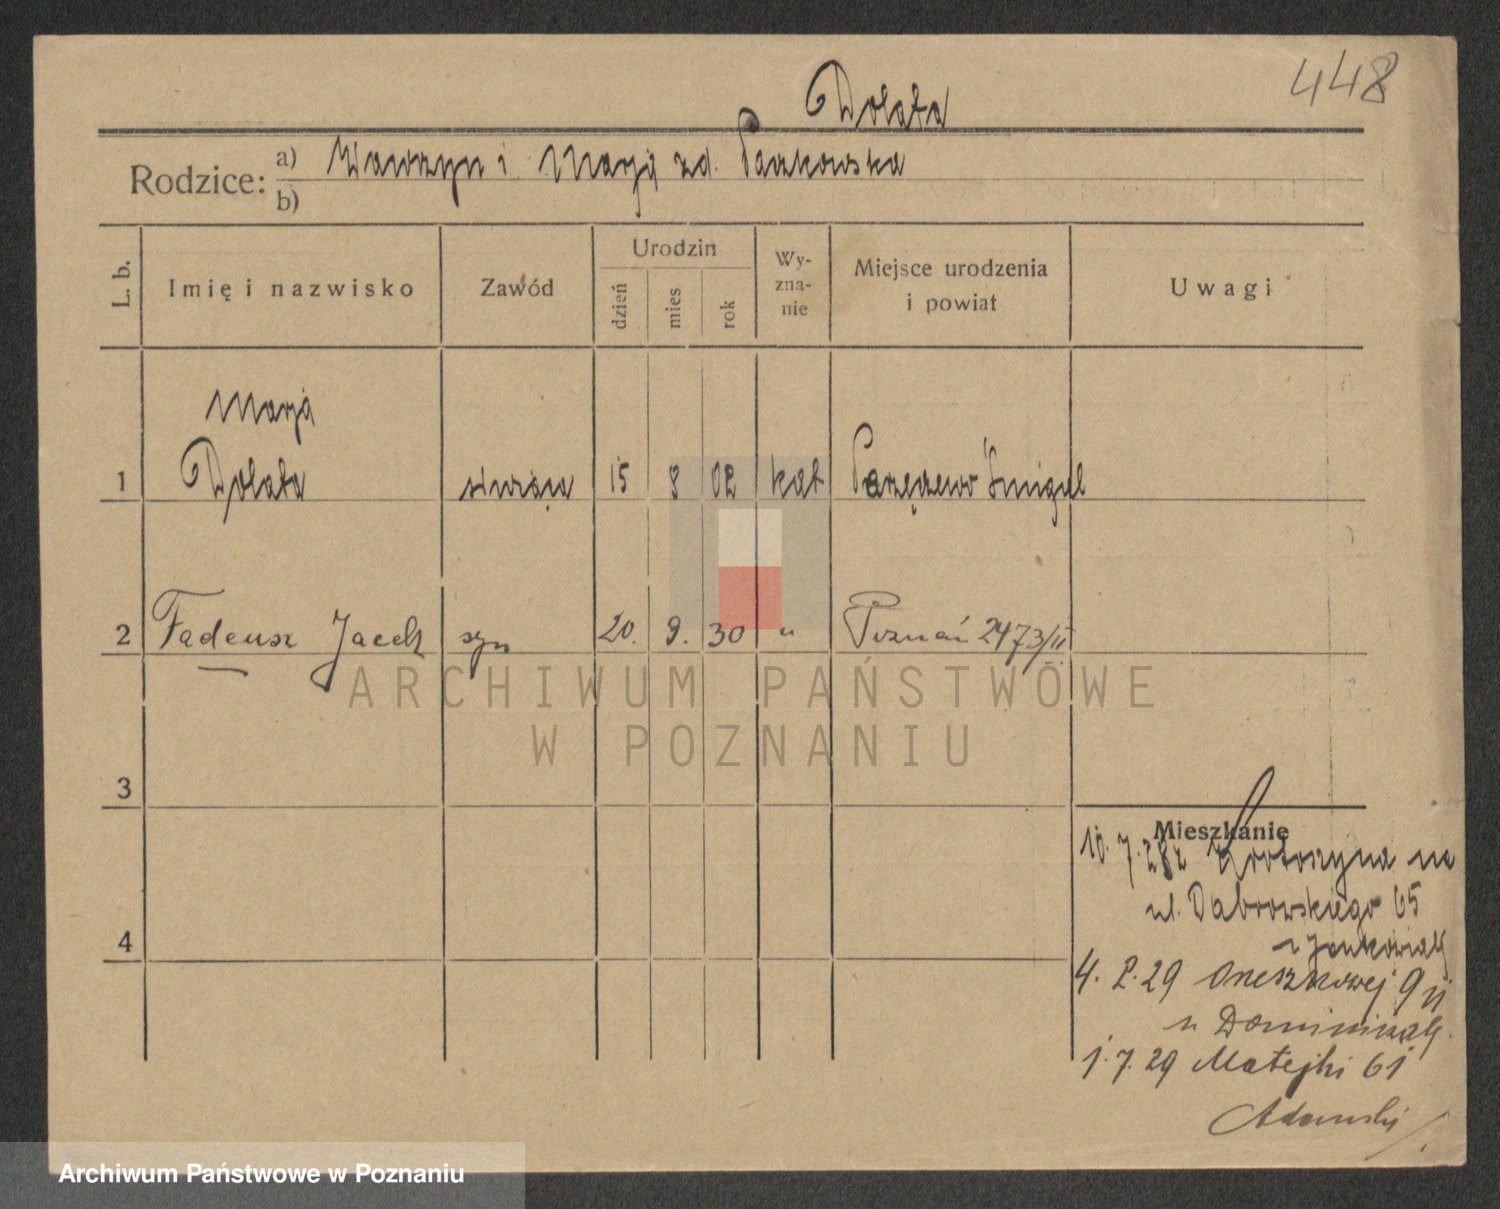 448
Dolata
Rodzice: a) Wawrzyn i Marja zd. Paczkowska
b)
L. b. Imię i nazwisko Zawód Urodzin dzień mies rok Wy-zna-nie Miejsce urodzenia i powiat Uwagi
Marja
1 Dolata służąca 15 8 02 kat Parzęczewo Śmigiel
2 Tadeusz Jacek syn 20. 9. 30 " Poznań 2473/II
ARCHIWUM PAŃSTWOWE
W POZNANIU
3
Mieszkanie
10.7.28 z Krotoszyna na
ul. Dąbrowskiego 65
4
u Jankowiak
4. 2. 29 9 II
u Dominiczak
1. 7. 29 Matejki 61
Adamski
Archiwum Państwowe w Poznaniu